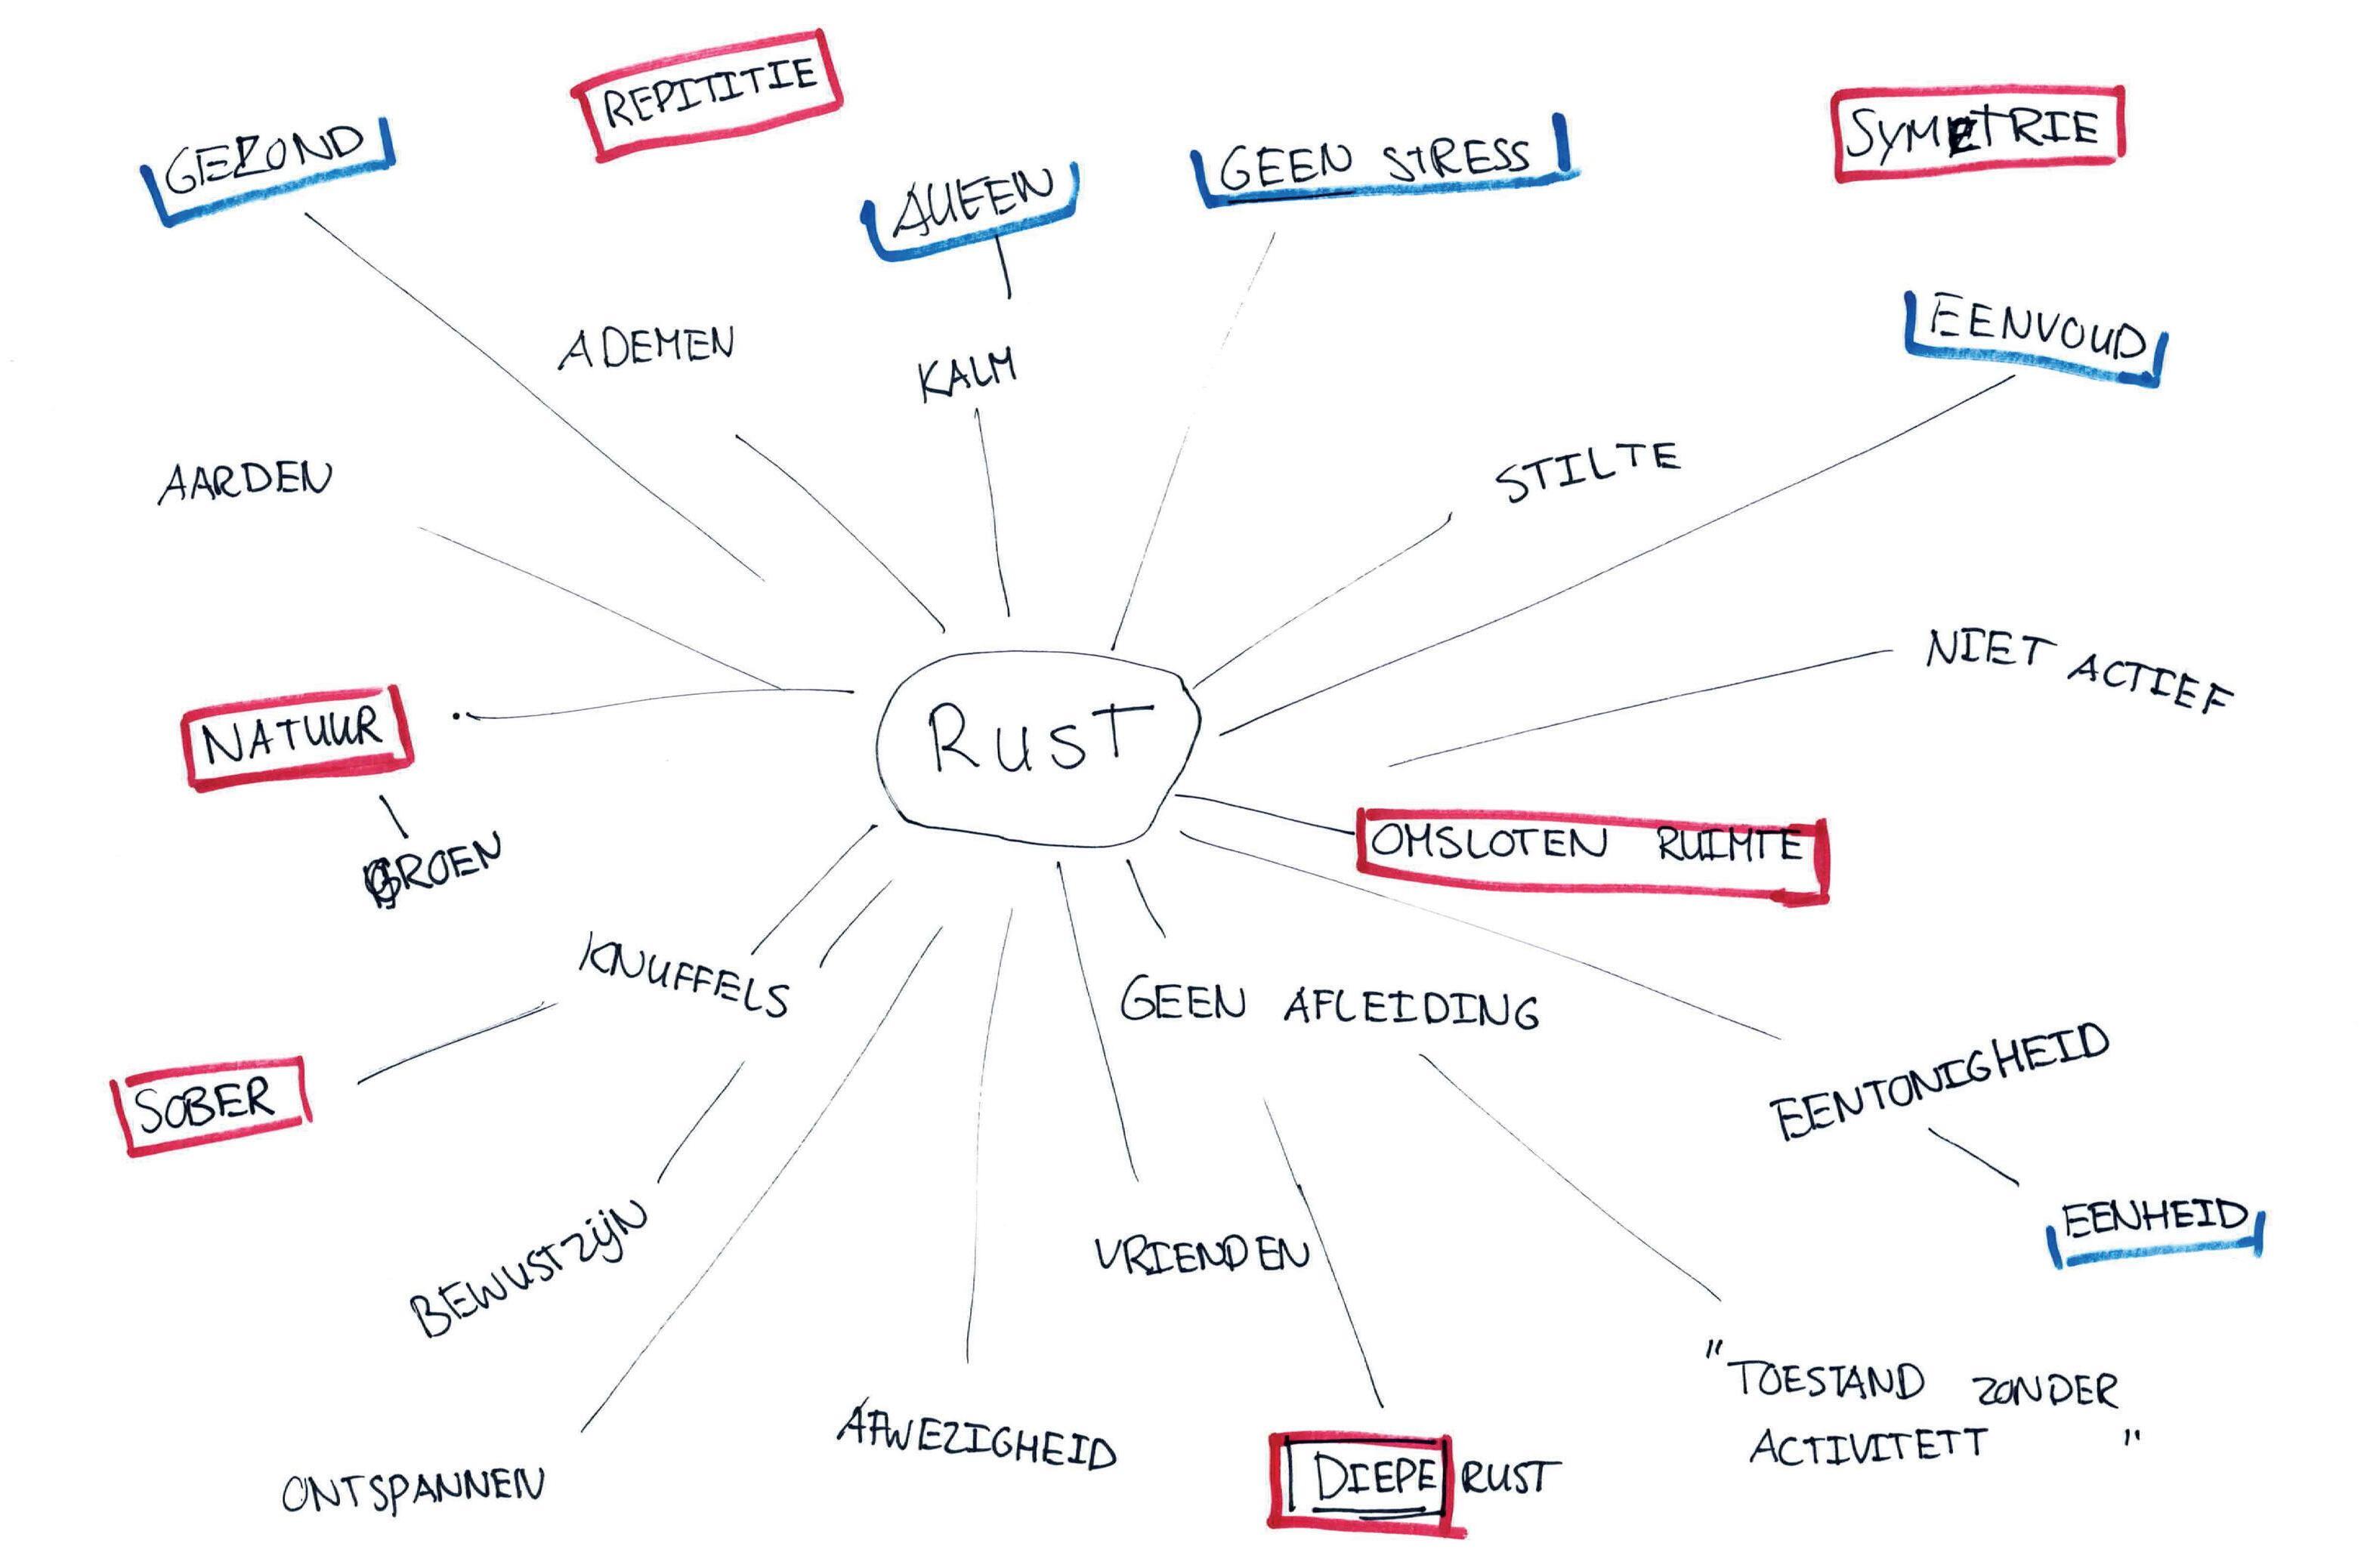 REPITITIE
SYMETRIE
GEZOND
GEEN STRESS
ALLEEN
EENVOUD
ADEMEN
KALM
STILTE
AARDEN
NIET ACTIEF
NATUUR
RUST
OMSLOTEN RUIMTE
GROEN
KNUFFELS
GEEN AFLEIDING
SOBER
EENTONIGHEID
EENHEID
BEWUSTZIJN
VRIENDEN
"TOESTAND ZONDER
ACTIVITETT "
AFWEZIGHEID
DIEPE RUST
ONTSPANNEN